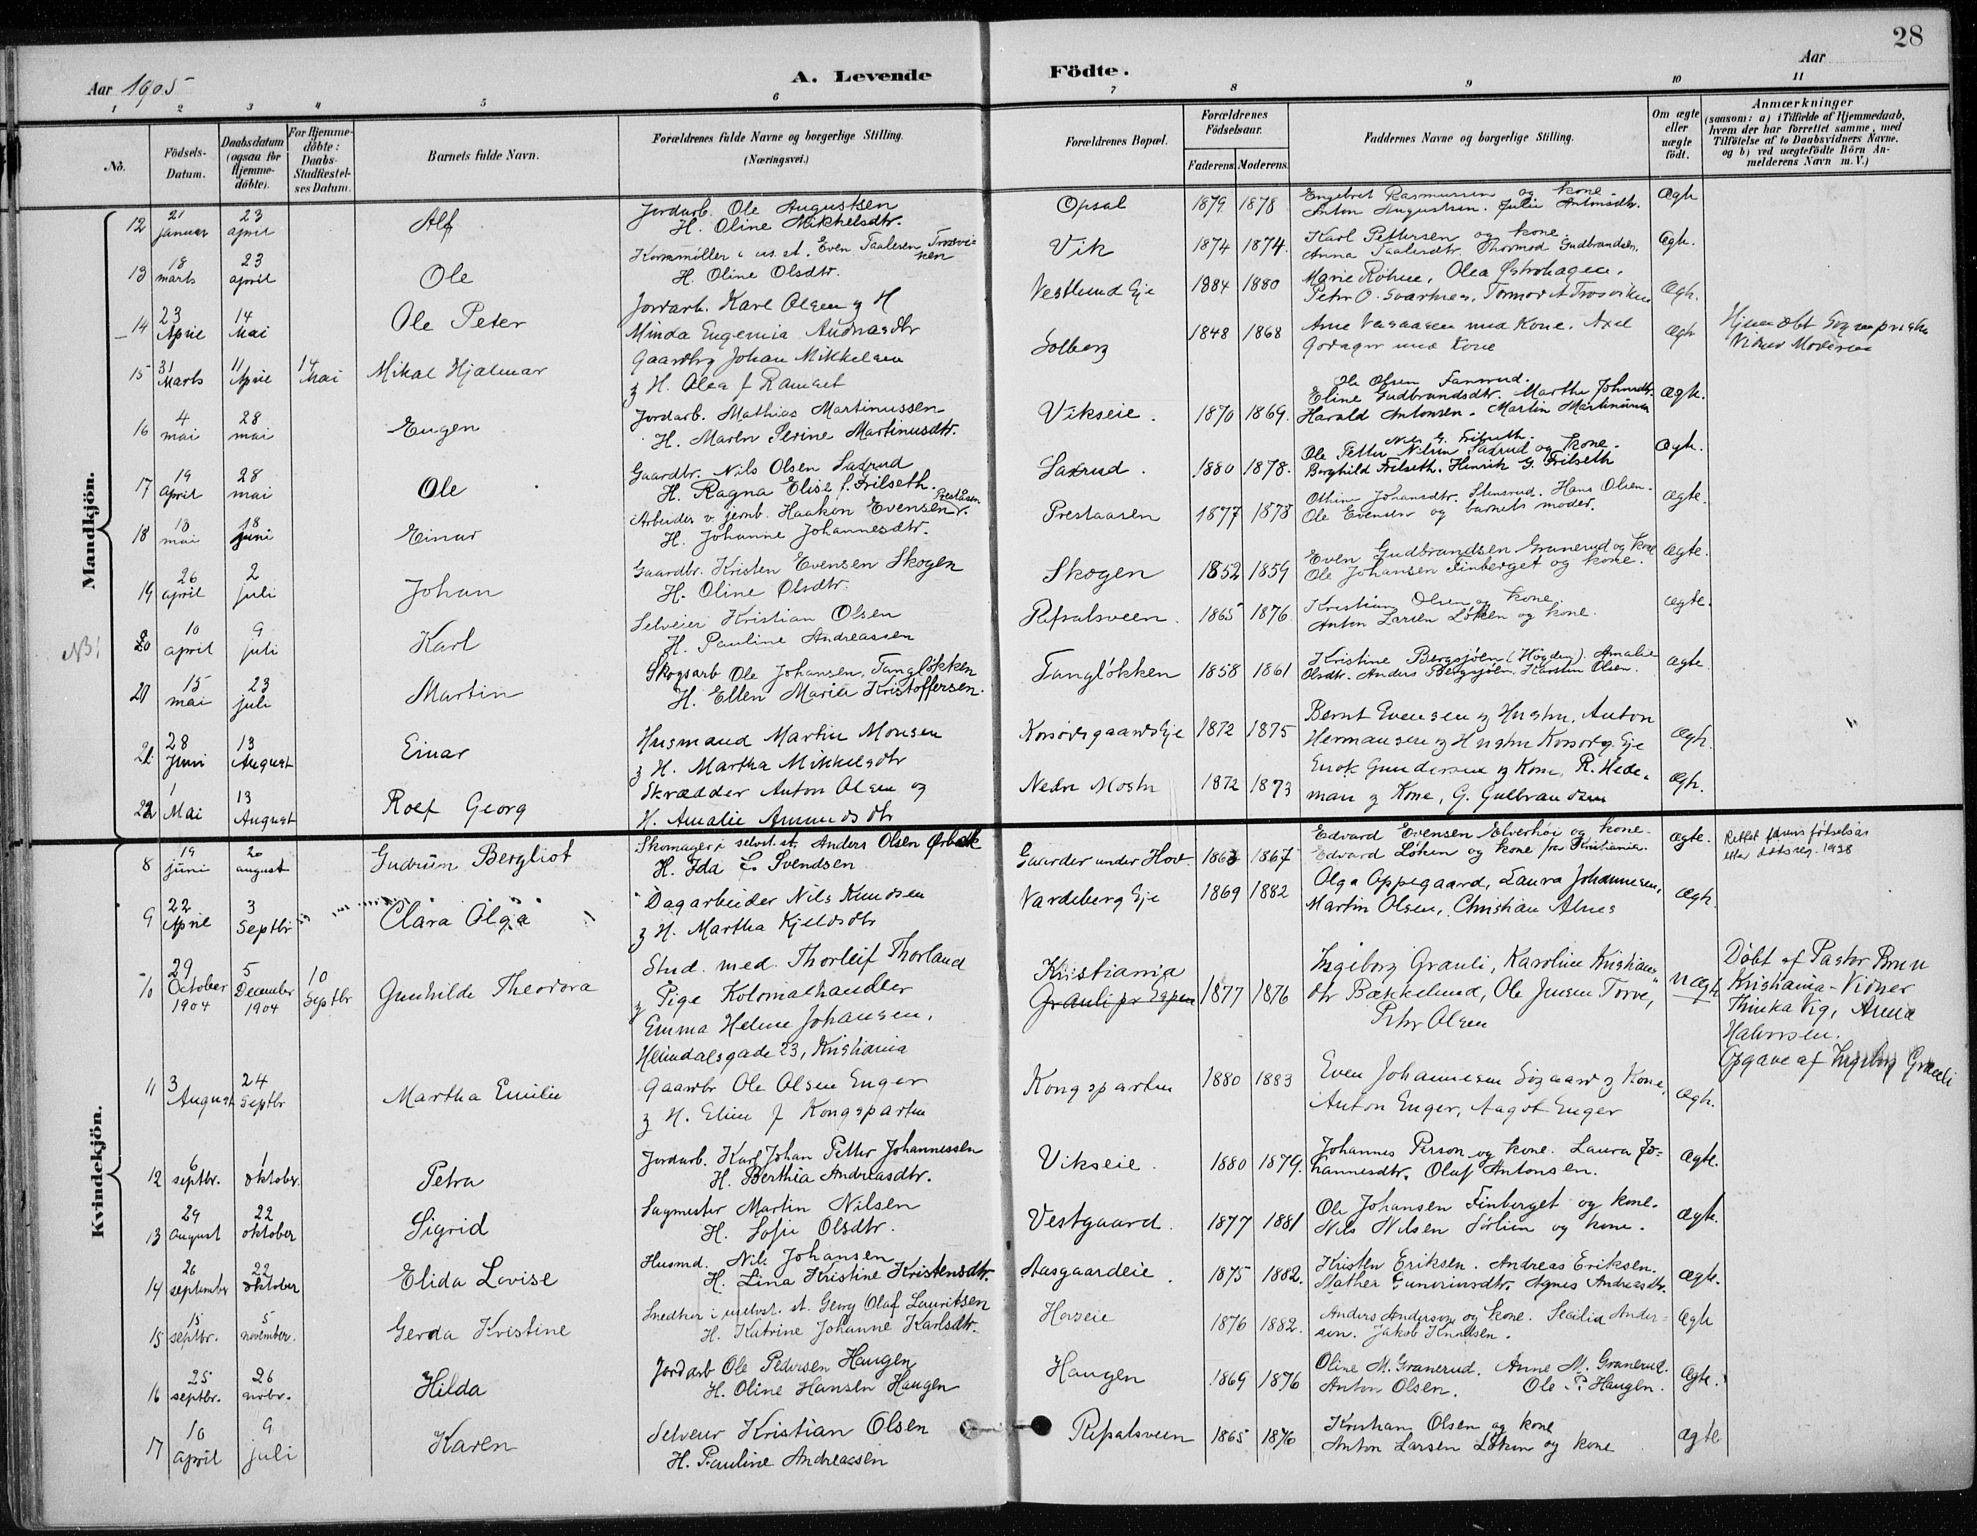 28
Aar 1905
A. Levende Födte.
Aar
1 2 3 4 5 6 7 8 9 10 11
No.
Födsels-Datum.
Daabsdatum (ogsaa for Hjemme-döbte).
For Hjemme-döbte: Daabs-Stadfæstel-ses Datum.
Barnets fulde Navn.
Forældrenes fulde Navne og borgerlige Stilling. (Næringsvei.)
Forældrenes Bopæl.
Forældrenes Födselsaar.
Faderens. Moderens.
Faddernes Navne og borgerlige Stilling.
Om ægte eller uægte födt.
Anmærkninger (saasom: a) i Tilfælde af Hjemmedaab, hvem der har forrettet samme, med Tilföielse af to Daabsvidners Navne. og b) ved uægtefödte Börn An-melderens Navn m. V.)
Mandkjön.
12 21 januar 23 april Alf Jordarb. Ole Augustsen H. Oline Mikkelsdtr. Opsal 1879 1878 Engebret Rasmussen og kone. Anton Augustsen. Julie Antonsdtr. Ægte
13 18 marts 23 april Ole Even Taalesen H. Oline Olsdtr. Vik 1874 1874. Karl Pettersen og kone. Anna Taalesdtr. Thormod Gudbrandsen. Ægte.
14 23 April 14 Mai Ole Peter Jordarb. Karl Olsen og H Minda Eugenia Andreasdtr Vestlund Eje 1884 1880 Ægte.
15 31 Marts 11 April 14 Mai Mikal Hjalmar Gaardbr Johan Mikkelsen og H. Olea f Ramset Solberg 1848 1868 med Kone. Axel Godager med Kone Ægte
16 4 mai 28 mai Eugen Jordarb. Mathias Martinussen H. Maren Perine Martinusdtr. Vikseie. 1870 1869. Ole Olsen Fanrud. Eline Gudbrandsdtr. Martha Johnsdtr. Harald Antonsen. Martin Martinussen Ægte.
17 19 april 28 mai Ole Gaardbr. Nils Olsen Saxrud H. Ragna Elise f. Frilseth. Saxrud. 1880 1878. Nils G. Frilseth. Ole Petter Nilsen Saxrud og kone. Borghild Frilseth. Henrik G. Frilseth Ægte.
18 10 mai 18 juni Einar Arbeider v. jernb. Haakon Evensen Prestaasen. H. Johanne Johannesdtr. Prestaasen 1877 1878 Othine Johansdtr. Stensrud. Hans Olsen. Ole Evensen og barnets moder. Ægte.
19 26 april 2 juli Johan Gaardbr. Kristen Evensen Skogen H. Oline Olsdtr. Skogen 1852 1859 Even Gudbrandsen Granerud og kone Ole Johansen Finberget og kone. Ægte.
NB! 20 10 april 9 juli Karl Selveier Kristian Olsen H. Pauline Andreassen Ripsalsveen. 1865 1876 Kristian Olsen og kone. Anton Larsen Løken og kone. Ægte.
21 15 mai 23 juli Martin Skogsarb Ole Johansen, Tangløkken H. Ellen Maria Kristoffersen. Tangløkken 1858 1861 Kristine Bergsjøen (Høgden). Amalie Olsdtr. Anders Bergsjøen. Karsten Olsen. Ægte.
28 Juni 13 August Einar Husmand Martin Monsen og H. Martha Mikkelsdtr Korsødegaards Eje 1872 1875 Bernt Evensen og Hustru. Anton Hermansen og Hustru Korsødg. Eje Ægte.
22 1 Mai 13 August Rolf Georg Skrædder Anton Olsen og H. Amalie Amundsdtr Nedre Mostu 1872 1873 Enok Gundersen og Kone, R. Hedeman og Kone, G. Gulbrandsen Ægte.
Kvindekjön.
8 19 juni 20 august Gudrun Bergliot Skomager i selvst. st. Anders Olsen Ørbæk H. Ida L. Svendsen Gaarder under Hov 1863 1867 Edvard Evensen Elverhøi og kone. Edvard Løken og kone fra Kristiania. Ægte. Rettet farens fødselsår etter attest reg. 1938
9 22 April 3 Septbr Clara Olga Dagarbeider Nils Knudsen og H. Martha Kjeldsdtr Vardeberg Eje 1869 1882 Olga Oppegaard, Laura Johannesen, Martin Olsen, Christian Alnes Ægte.
10 29 October 1904 5 December 1904 10 Septbr Gunhilde Theodora Stud. med. Thorleif Thorland og Pige Kolonialhandler Emma Helene Johansen, Heimdalsgade 23, Kristiania Kristiania Grauli pr Espen 1877 1876 Ingeborg Grauli, Karoline Kristiansdtr Bækkelund, Ole Jensen Torve, Peter Olsen uægte Døbt af Pastor Brun Kristiania - Vidner Thinka Vig, Anna Halvorsen. Opgave af Ingeborg Grauli
11 3 August 24 Septbr Martha Emilie Gaardbr Ole Olsen Enger og H. Eline f Kongsparten Kongsparten 1880 1883 Even Johannesen Sogaard og Kone, Anton Enger, Aagot Enger Ægte.
12 6 septbr. 1 oktober. Petra Jordarb. Karl Johan Petter Johannessen H. Berthea Andreasdtr. Vikseie. 1880 1879. Johannes Person og kone. Laura Jo-hannesdtr. Olaf Antonsen. Ægte.
13 29 august 22 oktober Sigrid Sagmester Martin Nilsen H. Sofie Olsdtr. Vestgaard. 1877 1881 Ole Johansen Finberget og kone. Nils Nilsen Sørlien og kone. Ægte.
14 26 september 22 oktober Elida Lovise Husmd. Nils Johansen H. Lina Kristine Kristensdtr. Aasgaardeie. 1875 1882. Kristen Eriksen. Andreas Eriksen. Mathea Gunerusdtr. Agnes Andreasdtr. Ægte.
15 15 septbr. 5 november. Gerda Kristine Snedker i uselvst. st. Georg Olaf Lauritsen H. Katrine Johanne Karlsdtr. Horseie 1876 1882. Anders Anderson og kone. Secilia Ander-sen. Jakob Knudsen. Ægte
16 25 septbr. 26 novbr. Hilda Jordarb Ole Pedersen Haugen H. Oline Hansen Haugen Haugen 1869 1876 Oline M. Granerud. Anne M. Granerud. Anton Olsen. Ole P. Haugen. Ægte.
17 10 april 9 juli Karen Selveier Kristian Olsen H. Pauline Andreassen Ripsalsveen 1865 1876 Kristian Olsen og kone Anton Larsen Løken og kone ægte